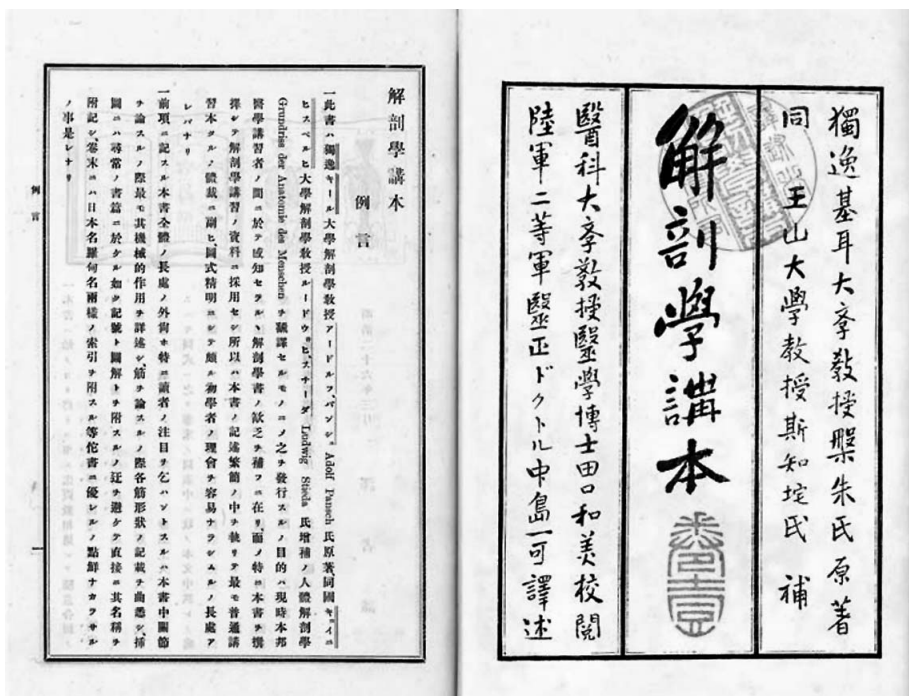 獨逸基耳大學教授槃朱氏原著
同王山大學教授斯知埞氏補
解剖學講本
醫科大學敎授醫學博士田口和美校閲
陸軍二等軍醫正ドクトル中島一可譯述
解剖學講本
例言
一此書ハ獨逸キール大學解剖學敎授アードルフ、パンシュ Adolf Pansch 氏原著同國キョイニ
ヒスベルヒ大學解剖學敎授ルードウヰヒ、スチーダ Ludwig Stieda 氏增補ノ人體解剖學
Grundriss der Anatomie des Menschen ヲ飜譯セルモノニシテ之ヲ發行スルノ目的ハ現時本邦
醫學講習者ノ間ニ於テ感知セラルヽ解剖學書ノ欵乏ヲ補フニ在リ、而メ特ニ本書ヲ撰
擇シテ解剖學講習ノ資料ニ採用セシ所以ハ本書ノ記述繁簡ノ中ヲ執リテ最モ普通講
習本タルノ體裁ニ副ヒ圖式精明ニシテ頗ル初學者ノ理會ヲ容易ナラシムルノ長處ア
レバナリ
一前項ニ記スル本書全體ノ長處ノ外尙ホ特ニ讀者ノ注目ヲ乞ハントスルハ本書中關節
ヲ論スルノ際最モ其機械的作用ヲ詳述シ、筋ヲ論スルノ際各筋形狀ノ記載ヲ曲悉シ、揷
圖ニハ尋常ノ書篇ニ於ケル如ク記號ト圖解トヲ附スルノ迂ヲ避ケテ直接ニ其名稱ヲ
附記シ、卷末ニハ日本名羅甸名兩樣ノ索引ヲ附スル等佗書ニ優レルノ點鮮ナカラサル
ノ事是レナリ
例言
一